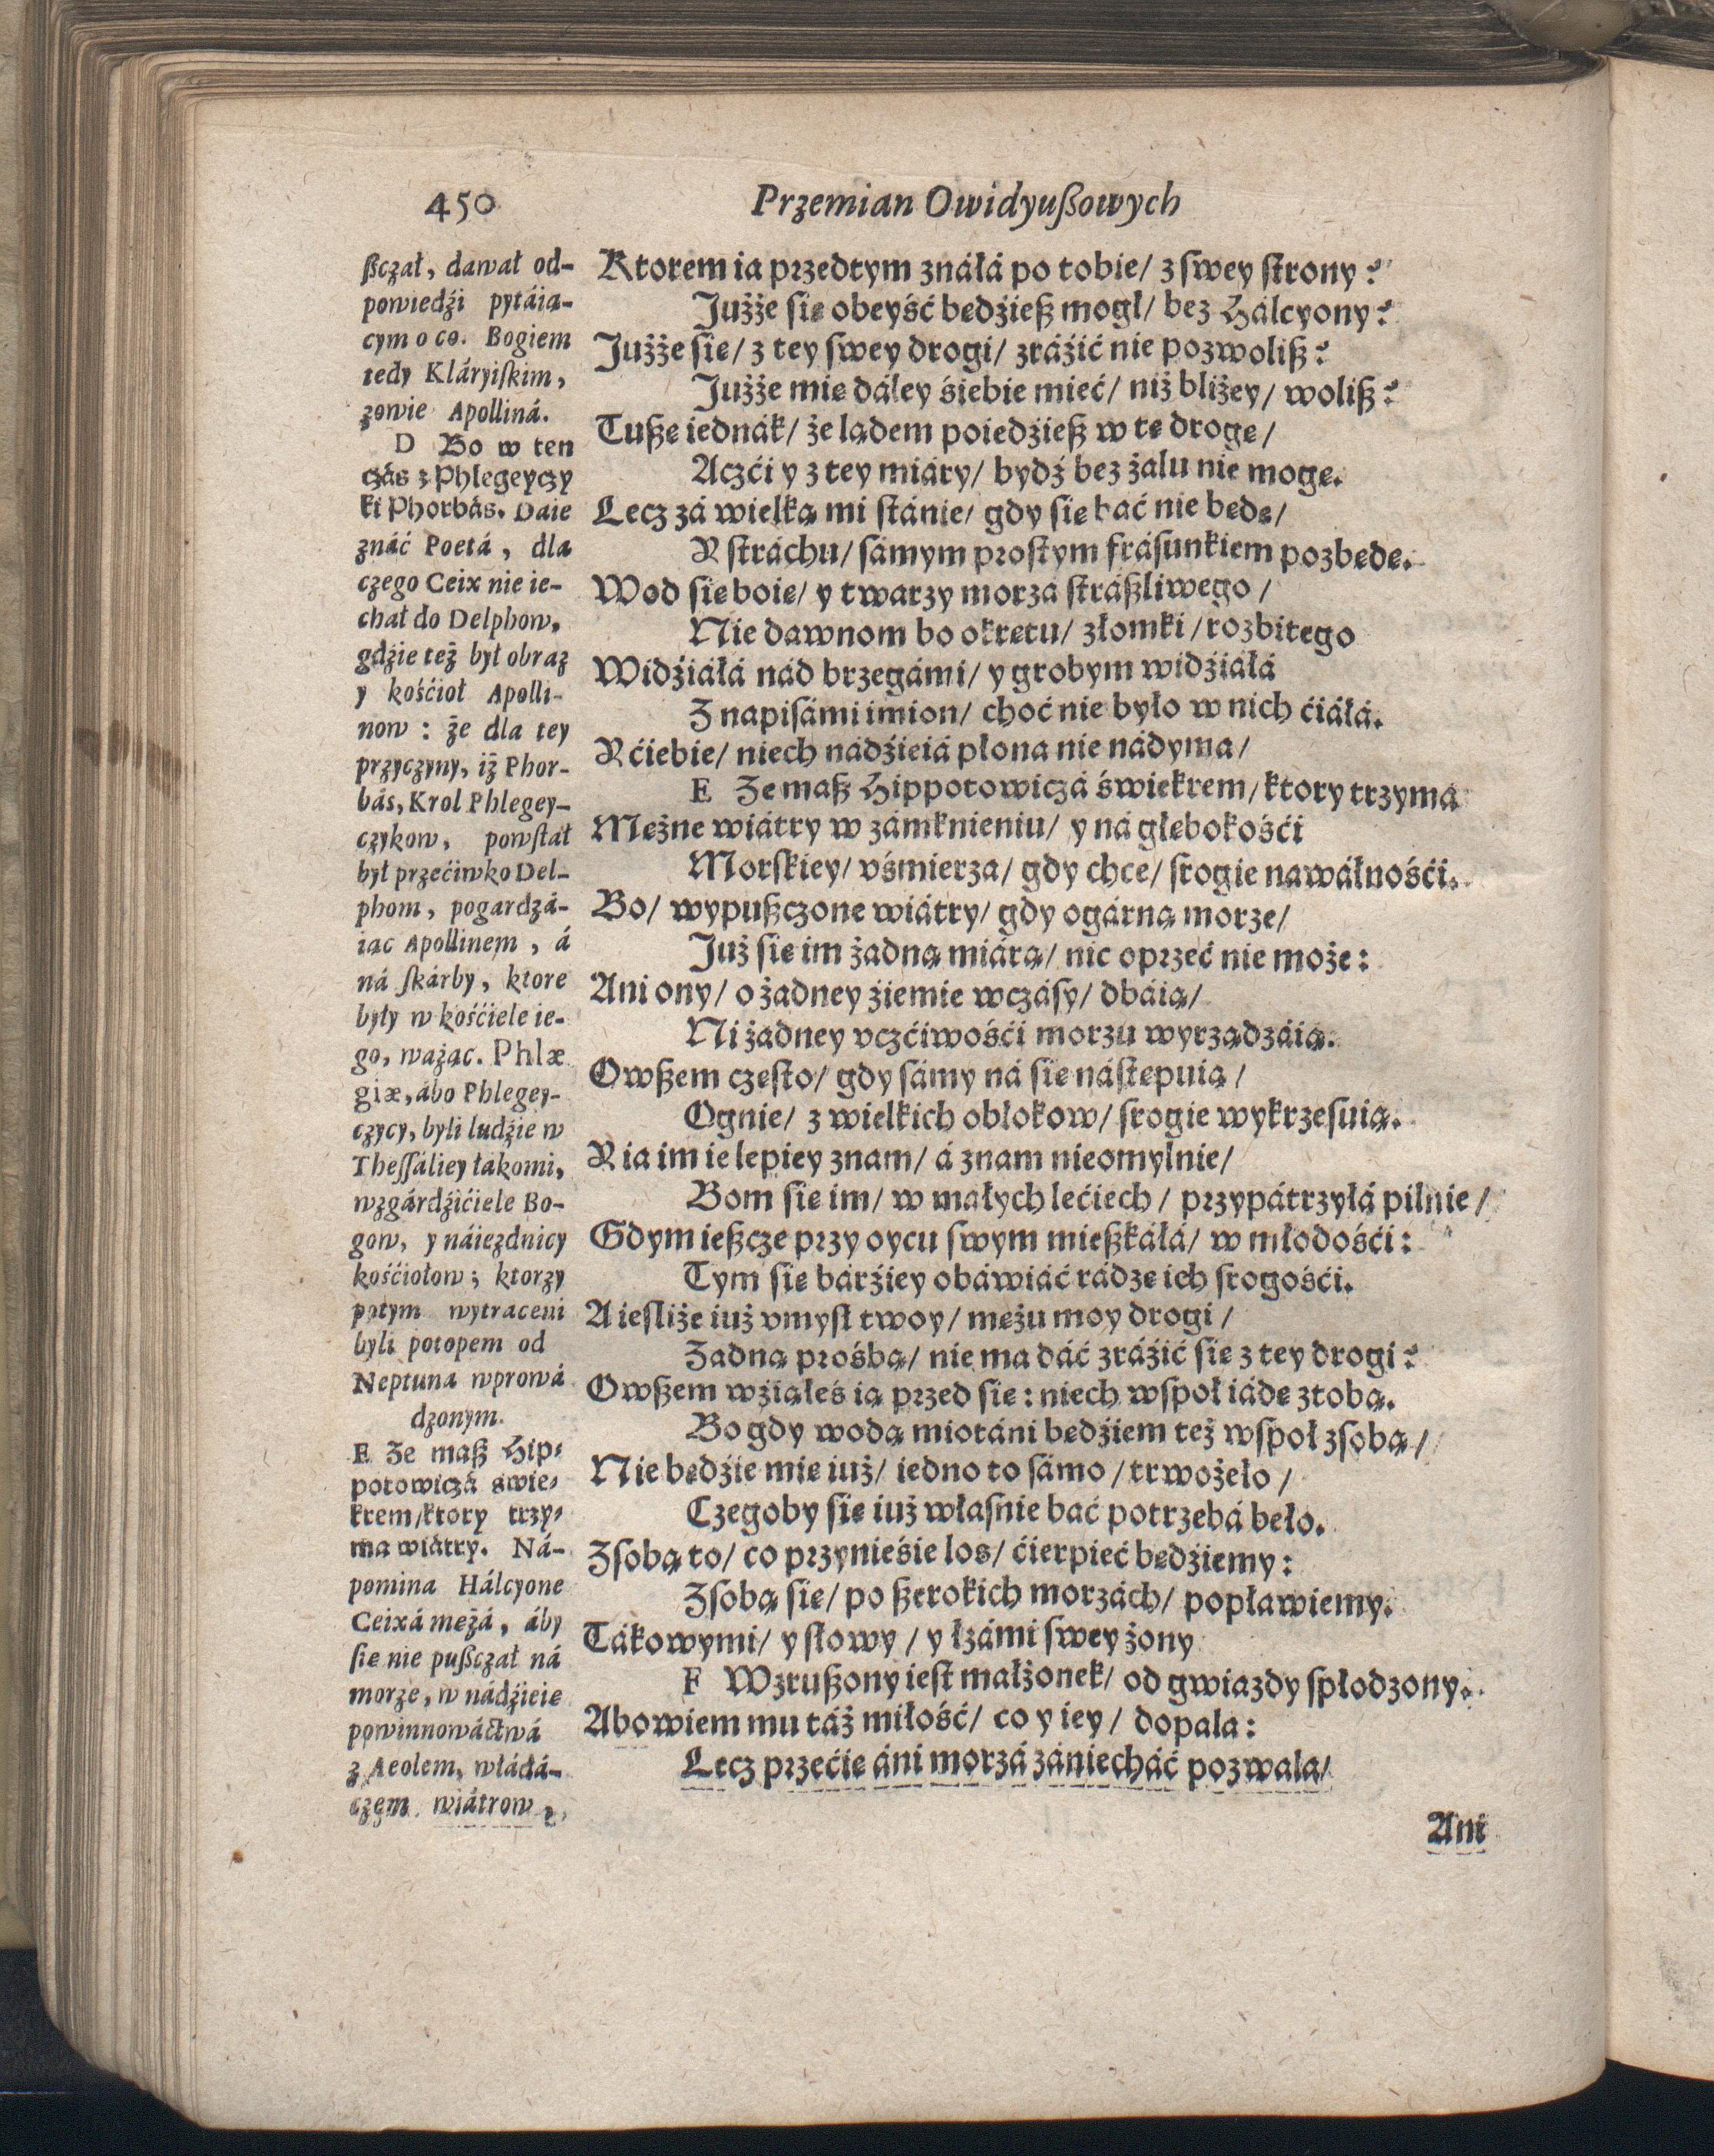 450
Przemian Owidyußowych
ßczał, dawał od-
powiedźi pytáią-
cym o co. Bogiem
tedy Kláryiſkim,
zowie Apolliná.
D Bo w ten
czás z Phlegeyczy
ki Phorbás. Daie
znáć Poetá, dla
czego Ceix nie ie-
chał do Delphow,
gdźie też był obraz
y kośćioł Apolli-
now : że dla tey
przyczyny, iż Phor-
bás, Krol Phlegey-
czykow, powſtał
był przećiwko Del-
phom, pogardzá-
iąc Apollinem, á
ná ſkárby, ktore
były w kośćiele ie-
go, ważąc. Phlæ
giæ, ábo Phlegey-
czycy, byli ludźie w
Theſſáliey łákomi,
wzgárdźićiele Bo-
gow, y náiezdnicy
kośćiołow; ktorzy
potym wytraceni
byli potopem od
Neptuna wprowá
dzonym.
E Że maß Hip-
potowiczá świe-
krem/ktory trzy-
ma wiátry. Ná-
pomina Hálcyone
Ceixá mężá, áby
ſię nie pußczał ná
morze, w nádźieię
powinnowáctwá
z Aeolem, włádá-
czem wiátrow,
Ktorem ia przedtym znáłá po tobie/ z ſwey ſtrony?
Jużże ſię obeyść będźieß mogł/ bez Hálcyony?
Jużże ſię/ z tey ſwey drogi/ zráźić nie pozwoliß?
Jużże mię dáley śiebie mieć/ niż bliżey/ woliß?
Tußę iednák/ że lądem poiedźieß w tę drogę/
Aczći y z tey miáry/ bydź bez żalu nie mogę.
Lecz zá wielką mi ſtánie/ gdy ſię bać nie będę/
Y ſtráchu/ ſámym proſtym fráſunkiem pozbędę.
Wod ſię boię/ y twarzy morza ſtráßliwego/
Nie dawnom bo okrętu/ złomki/ rozbitego
Widźiáłá nád brzegámi/ y grobym widźiáłá
Z napiſámi imion/ choć nie było w nich ćiáłá.
Y ćiebie/ niech nádźieiá płona nie nádyma/
E Że maß Hippotowiczá świekrem/ ktory trzyma
Mężne wiátry w zámknieniu/ y ná głębokośći
Morſkiey/ vśmierza/ gdy chce/ ſrogie nawáłnośći.
Bo/ wypußczone wiátry/ gdy ogárną morze/
Już ſię im żadną miárą/ nic oprzeć nie może:
Ani ony/ o żadney źiemie wczáſy/ dbáią/
Ni żadney vczćiwośći morzu wyrządzáią.
Owßem często/ gdy ſámy ná ſię náſtępuią/
Ognie/ z wielkich obłokow/ ſrogie wykrzeſuią.
Y ia im ie lepiey znam/ á znam nieomylnie/
Bom ſię im/ w małych lećiech/ przypátrzyłá pilnie/
Gdym ießcze przy oycu ſwym mießkáłá/ w młodośći:
Tym ſię bárźiey obáwiáć rádzę ich ſrogośći.
A ieſliże iuż vmyſł twoy/ mężu moy drogi/
Żadną prośbą/ nie ma dáć zráźić ſię z tey drogi?
Owßem wźiąłeś ią przed ſię: niech wſpoł iádę z tobą.
Bo gdy wodą miotáni będźiem też wſpoł z ſobą/
Nie będźie mię iuż/ iedno to ſámo/ trwożeło/
Czegoby ſię iuż właſnie bać potrzebá beło.
Z ſobą to/ co przynieśie los/ ćierpieć będźiemy:
Z ſobą ſię/ po ßerokich morzách/ popławiemy.
Tákowymi/ y ſłowy/ y łzámi ſwey żony
F Wzrußony ieſt małżonek/ od gwiazdy ſpłodzony.
Abowiem mu táż miłość/ co y iey/ dopala:
Lecz przećię áni morzá zániecháć pozwala/
Ani